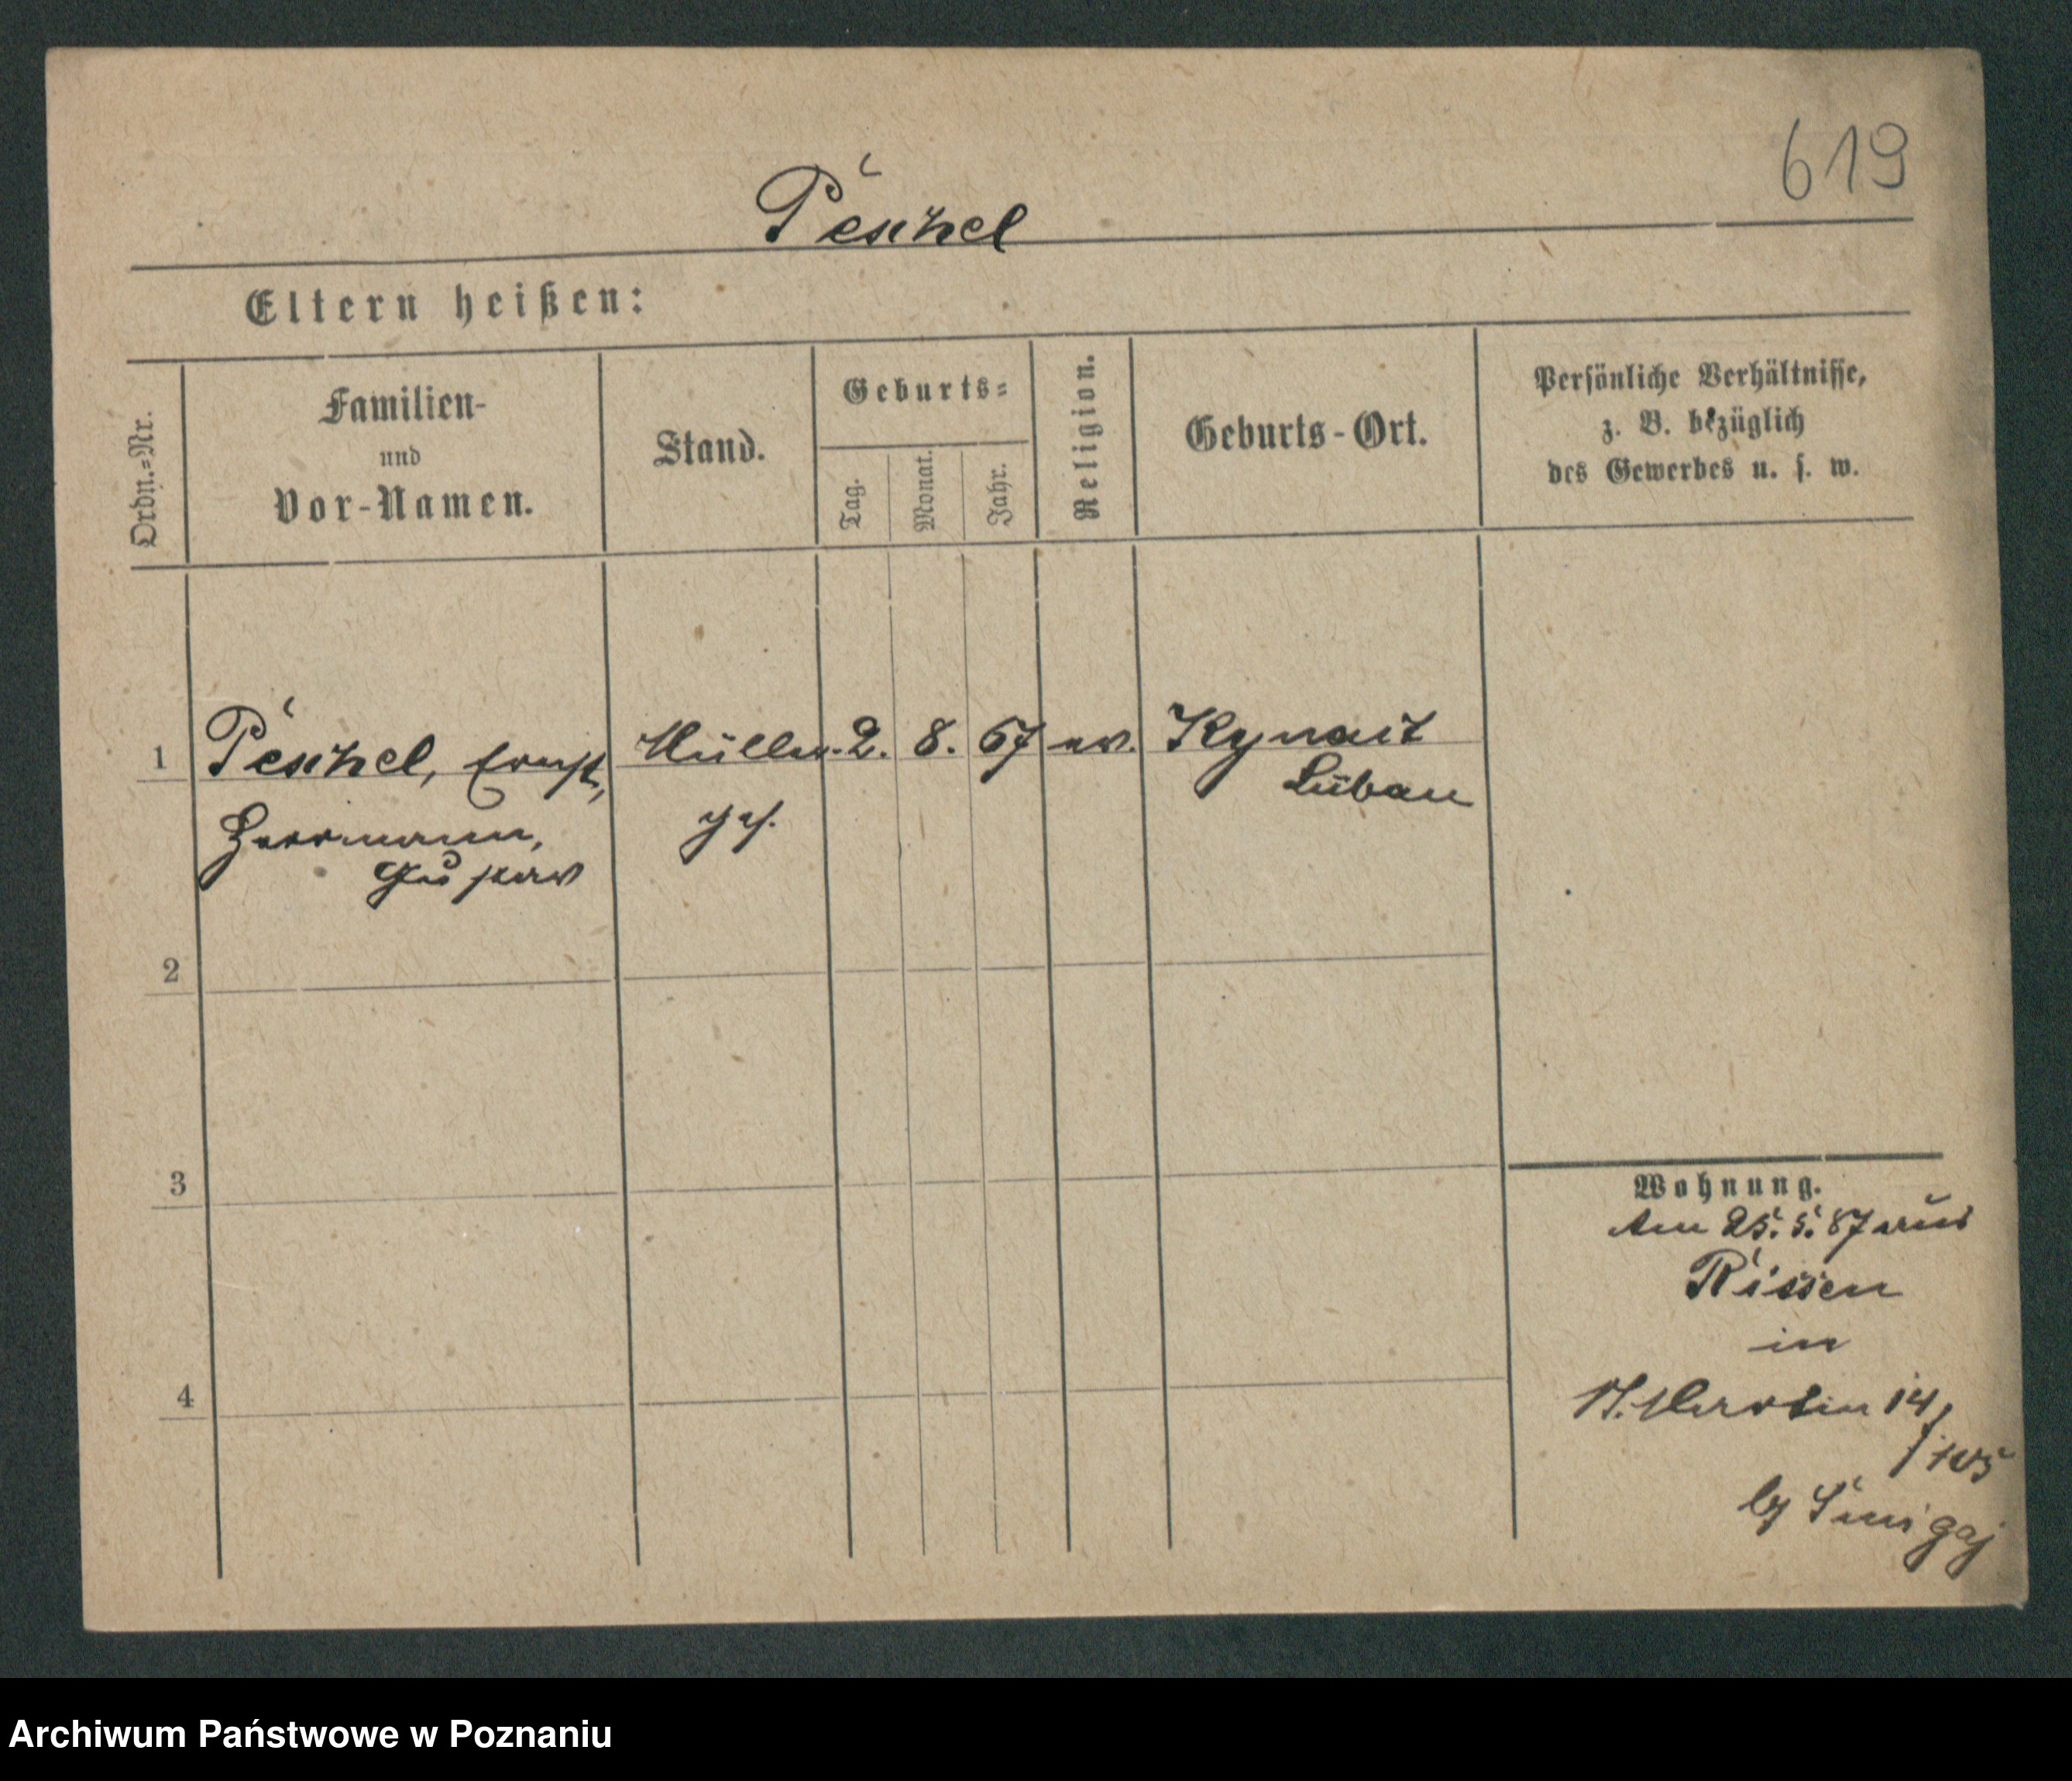 619
Peschel
Eltern heißen:
Ordn.=Nr.
Familien-
und
Vor-Namen.
Stand.
Geburts=
Tag.
Monat.
Jahr.
Religion.
Geburts-Ort.
Persönliche Verhältnisse,
z. B. bezüglich
des Gewerbes u. s. w.
1 Peschel, Ernst, Müller. 2. 8. 67 ev.
Lüban
Herrmann, ges.
Gustav
2
3
4
Wohnung.
Am 25. 5. 87 aus
Rissen
in
St. Martin 14/
Archiwum Państwowe w Poznaniu